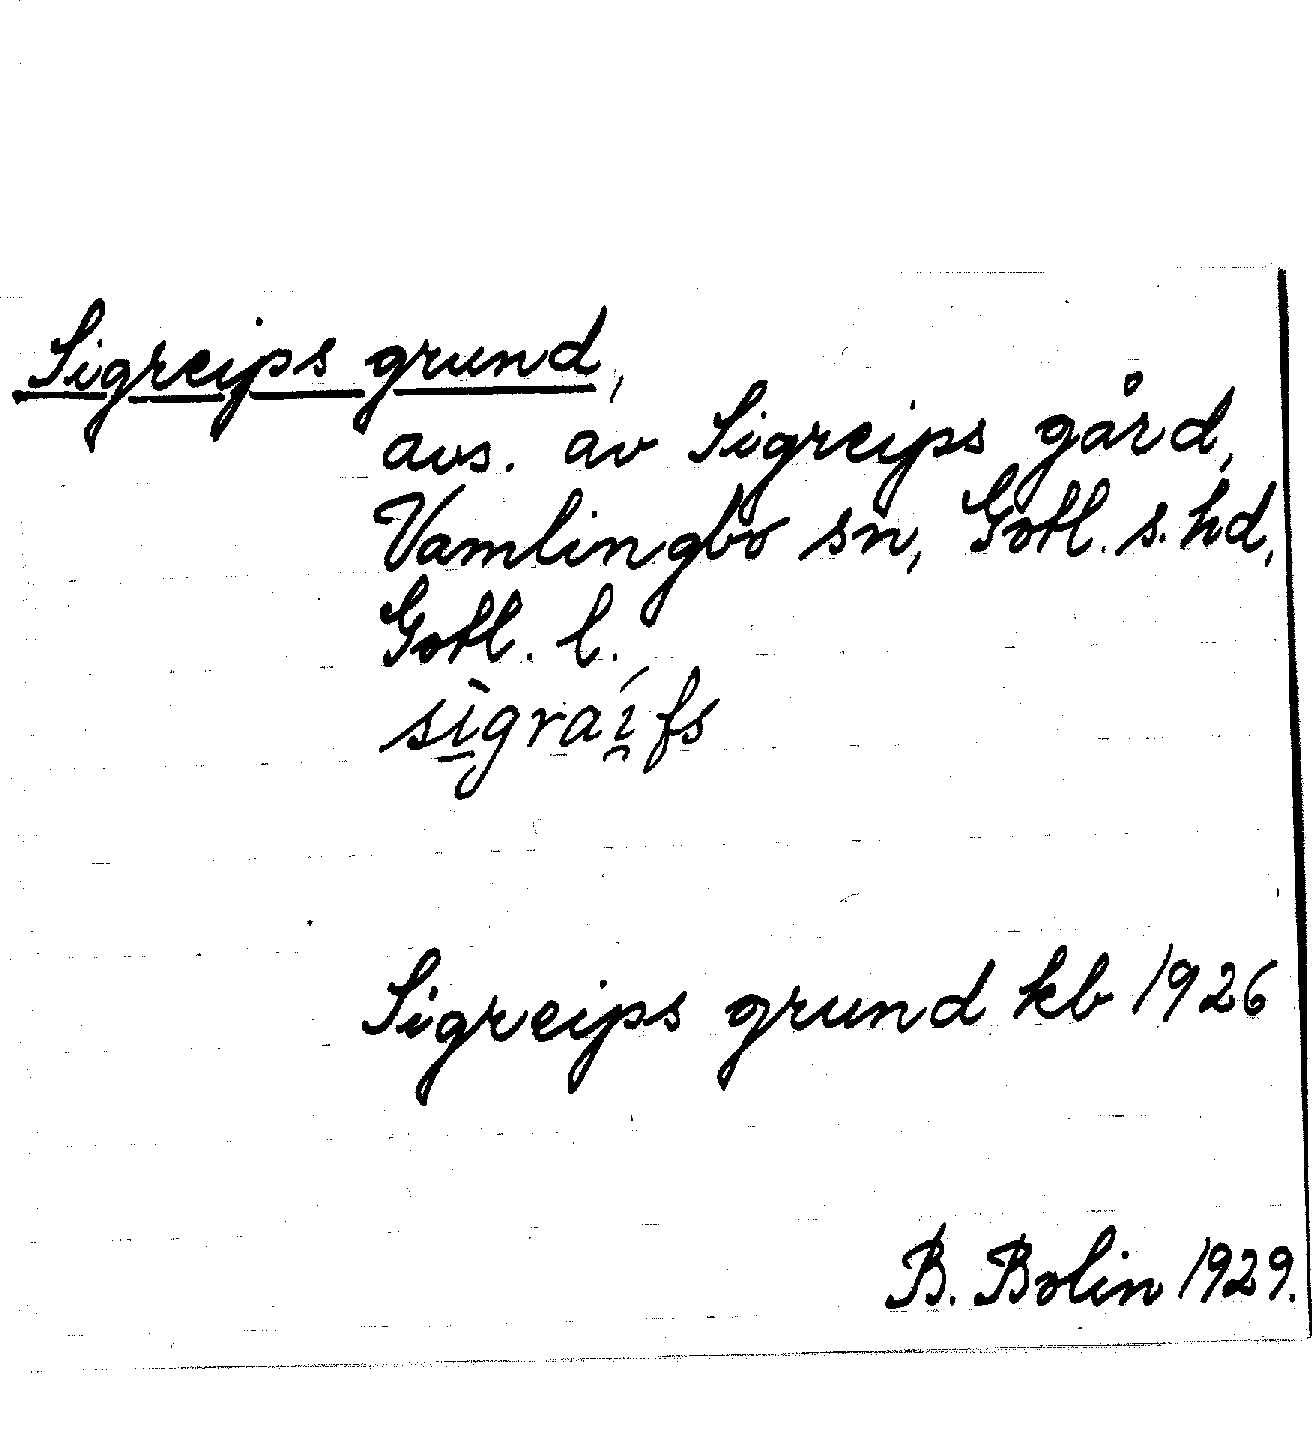 Sigreips grund,
avs. av Sigreips gård,
Vamlingbo sn, Gotl. s. hd,
Gotl. l.
sì̱graí̯fs
Sigreips grund kb 1926
B. Bolin 1929.